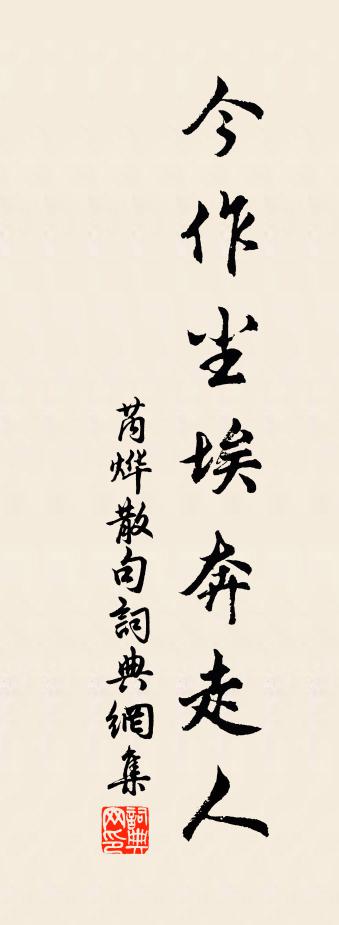 今作尘埃奔走人
芮烨散句詞典網集
詞典网印